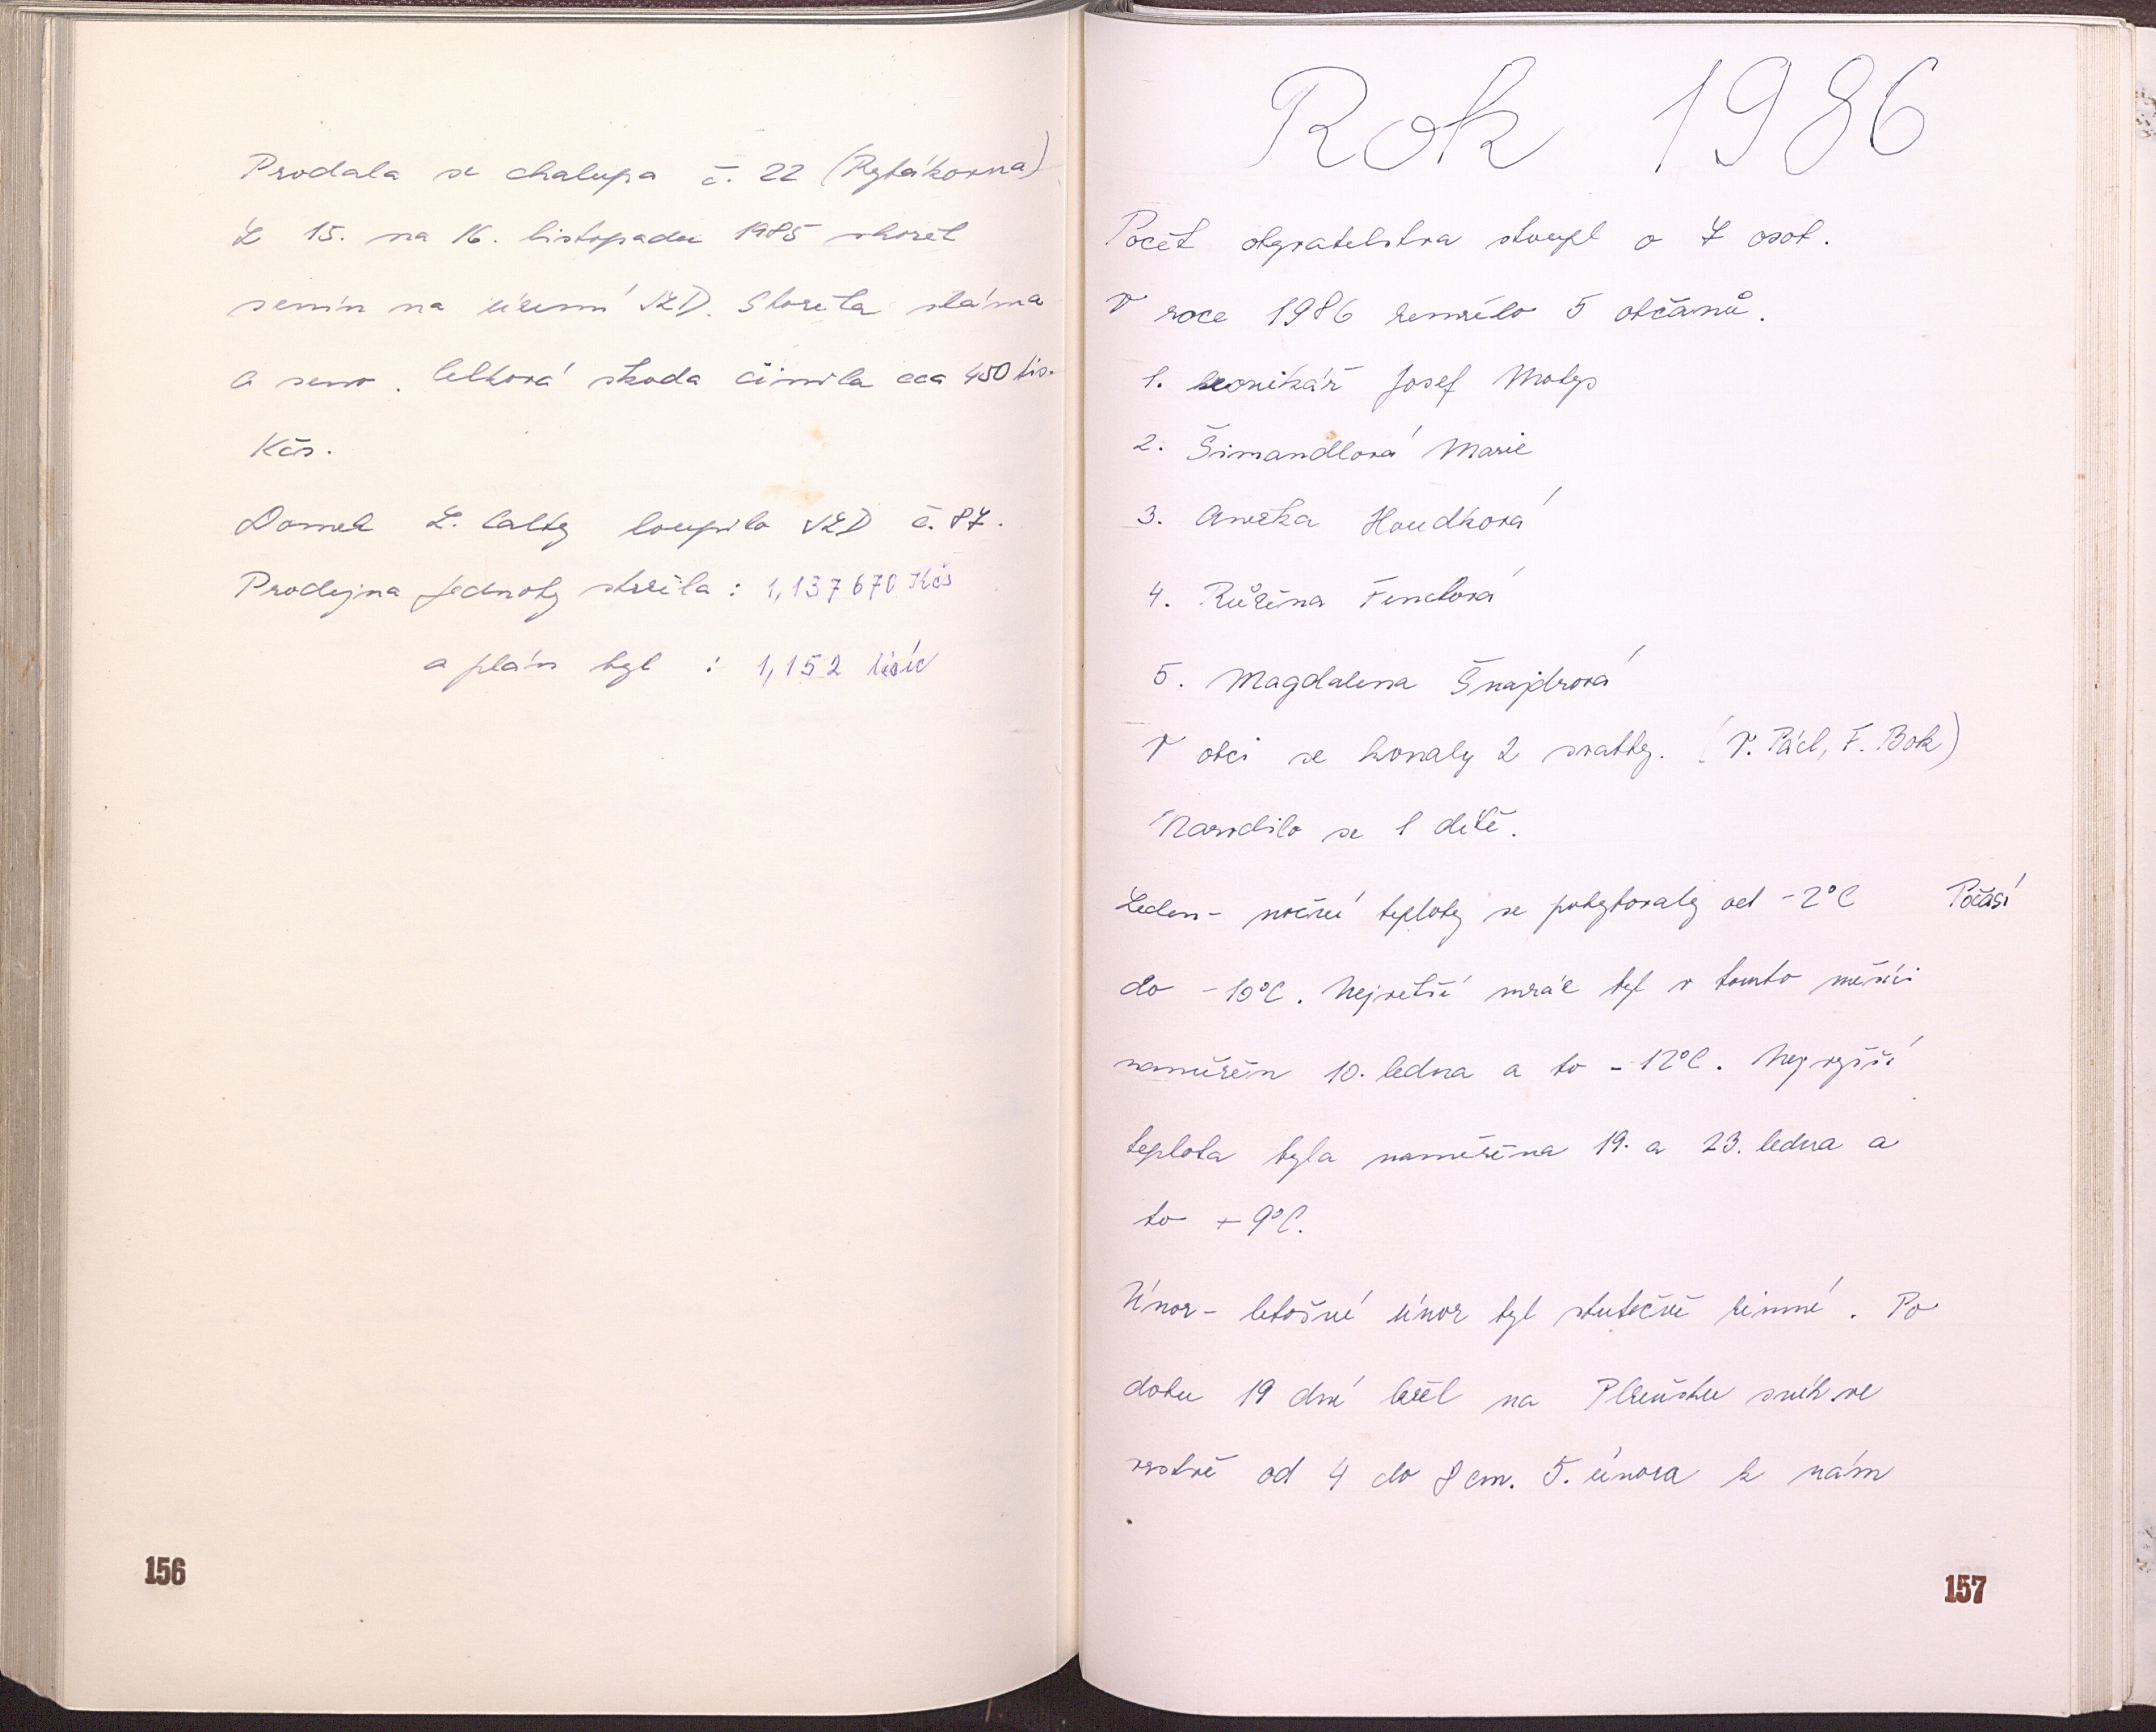 Prodala se chalupa č. 22 (Rybákovna)
Z 15. na 16. listopadu 1985 shořel
senín na území JZD. Shořela sláma
a seno. Celková škoda činila cca 450 tis.
Kčs.
Domek Z. Calty koupilo JZD č. 87.
Prodejna Jednoty stržila : 1,137 670 Kčs
a plán byl : 1,152 tisíc
156
Rok 1986
Počet obyvatelstva stoupl o 7 osob.
V roce 1986 zemřelo 5 občanů.
1. kronikář Josef Motys
2. Šimandlová Marie
3. Anežka Houdková
4. Růžena Fenclová
5. Magdalena Šnajdrová
V obci se konaly 2 svatby. (V. Pácl, F. Bok)
Narodilo se 1 dítě.
Leden - noční teploty se pohybovaly od -2°C Počasí
do -10°C. Největší mráz byl v tomto měsíci
naměřen 10. ledna a to -12°C. Nejvyšší
teplota byla naměřena 19. a 23. ledna a
to +9°C.
Únor - letošní únor byl skutečně zimní. Po
dobu 19 dní ležel na Plzeňsku sníh ve
vrstvě od 4 do 8 cm. 5. února k nám
157